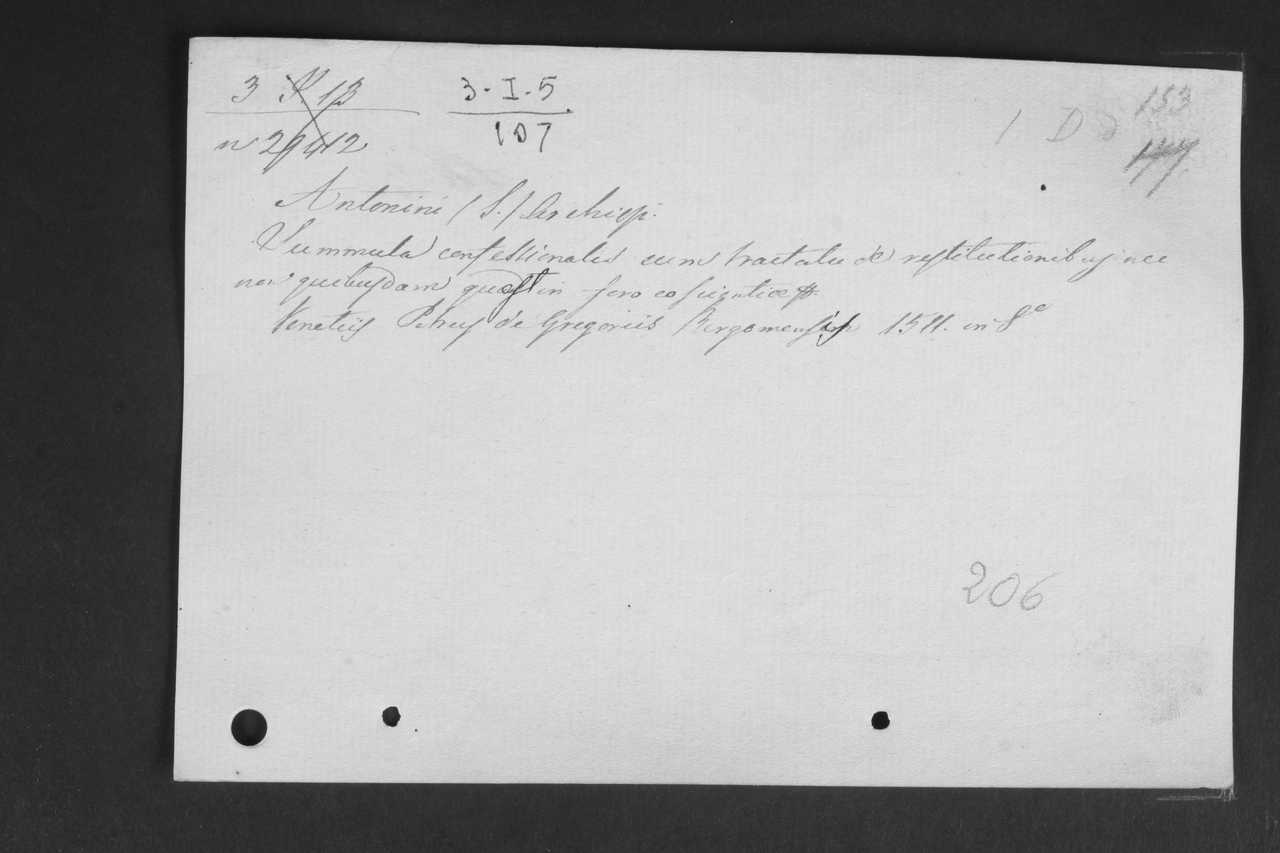 3 13
3-I-5
153
n 29412
107
1 D
Antonini (S.) Archiepi.
Summula confessionalis cum tractatu de restitutionibus nec
non quibusdam quæst in foro cosciențiæ
Venetiis Petrus de Gregoriis Bergomensis 1511. in 8°
206